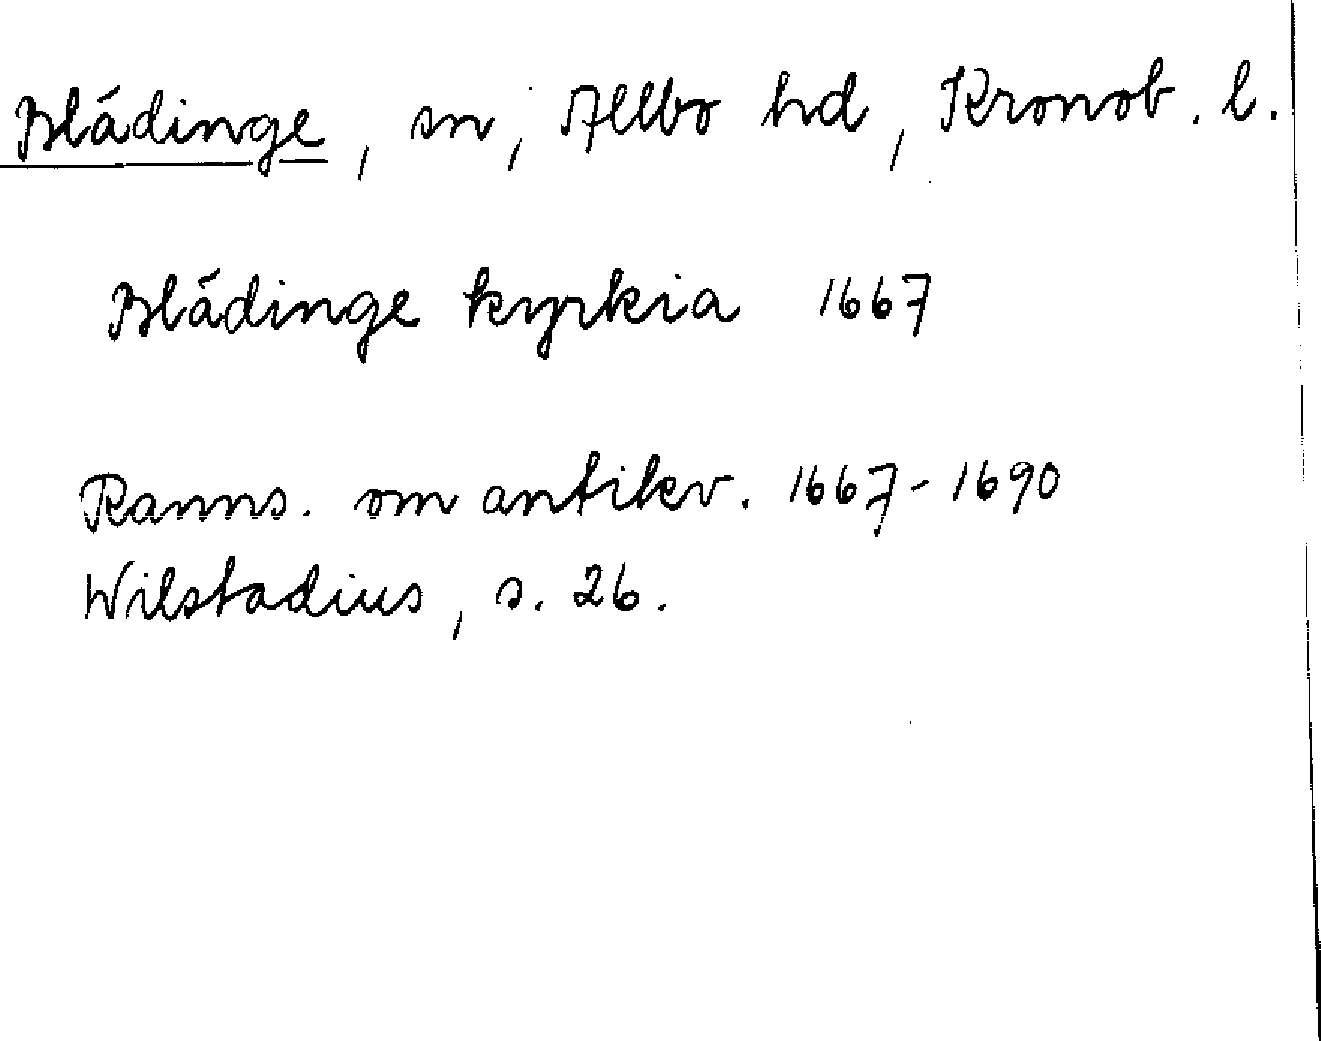 Blädinge, sn, Allbo hd, Kronob. l.
Blädinge kyrkia 1667
Ranns. om antikv. 1667-1690
Wilstadius, s. 26.